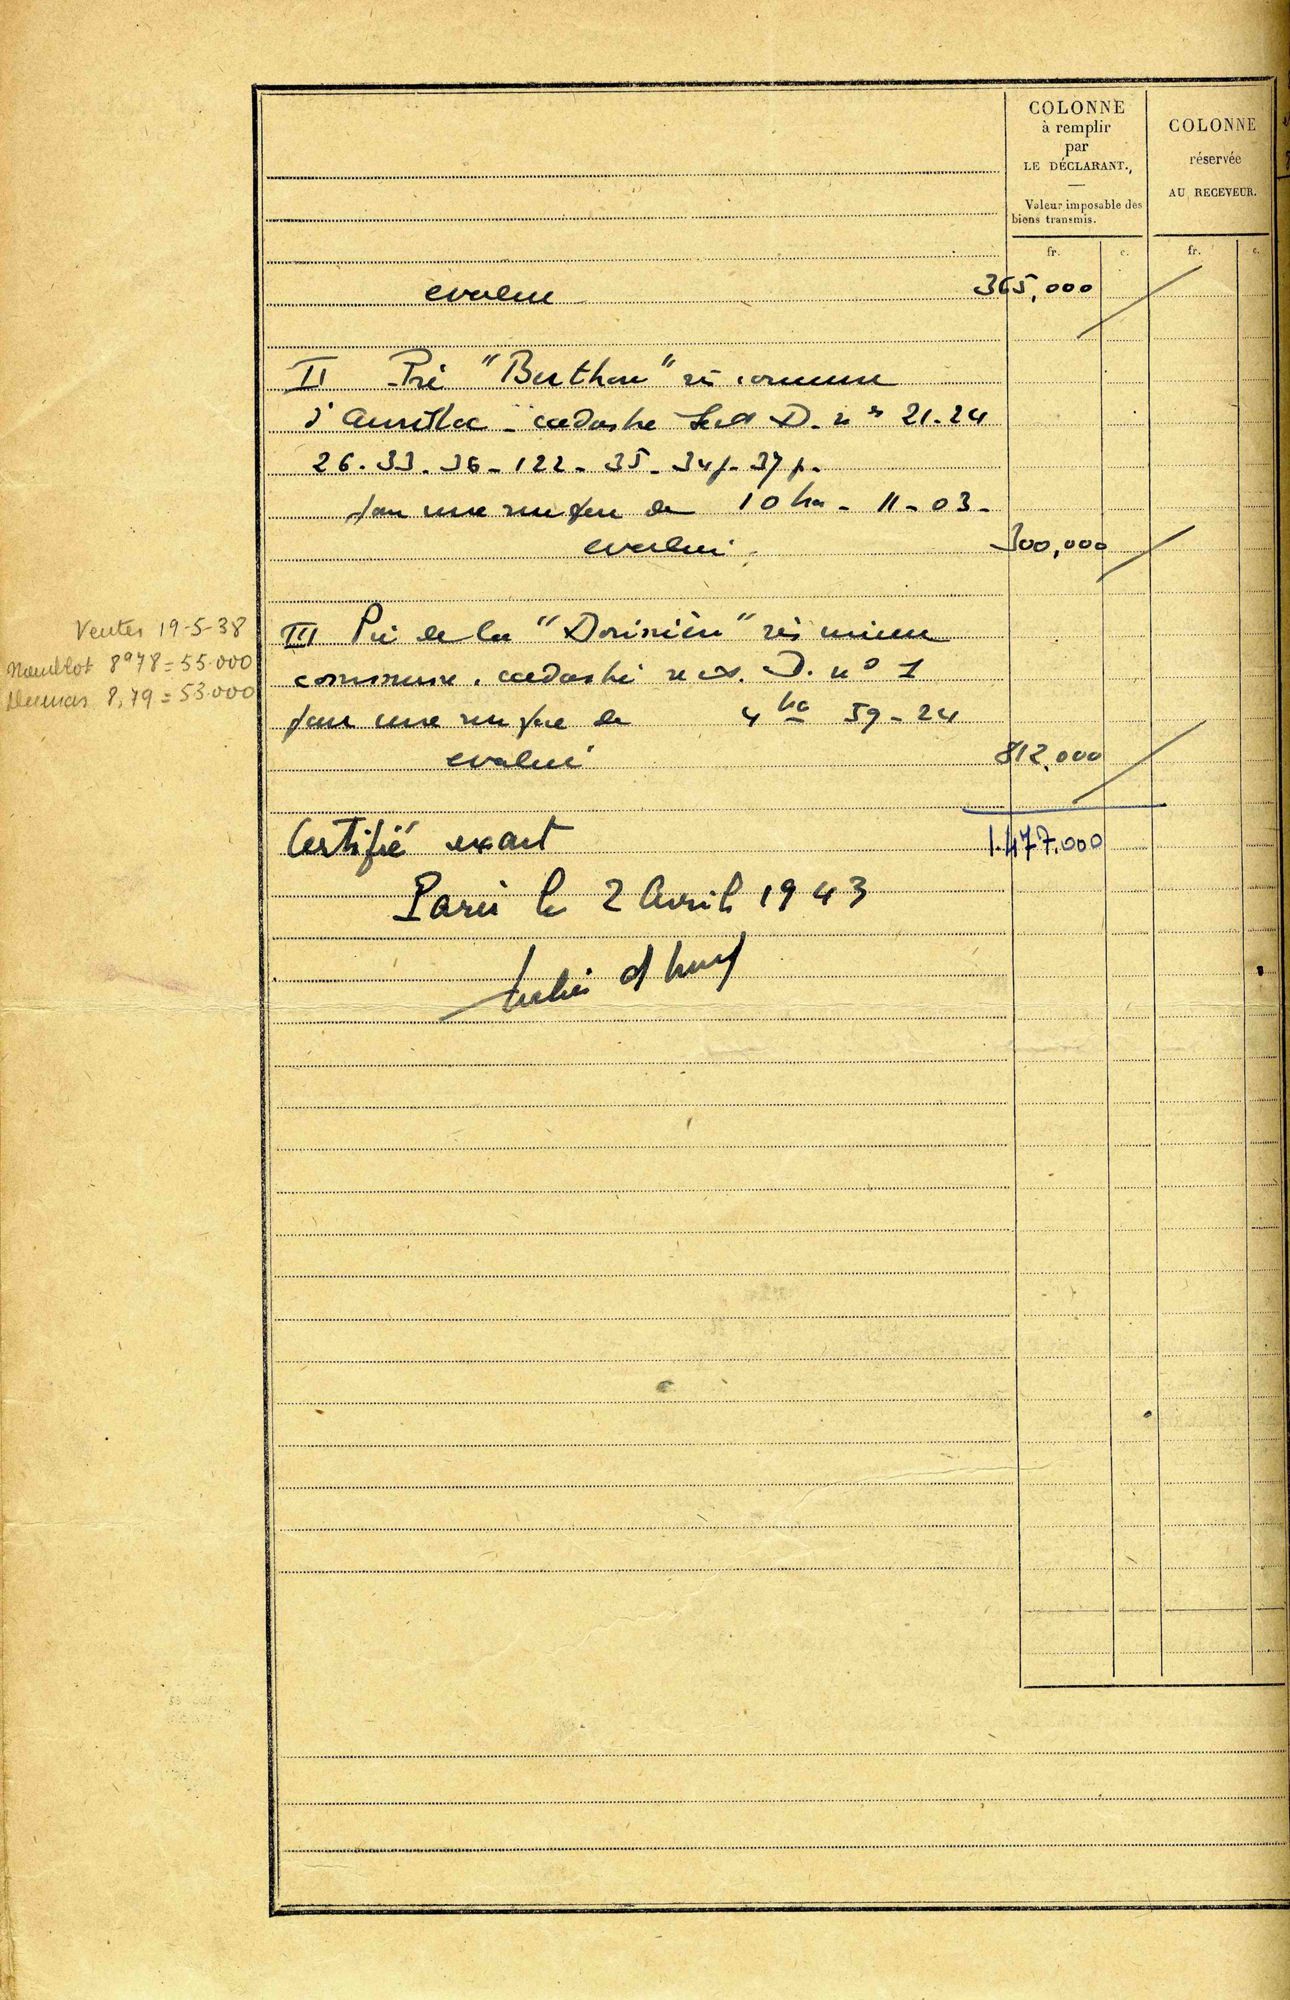 COLONNE
à remplir
par
LE DÉCLARANT.,
Valeur imposable des
biens transmis.
COLONNE
réservée
AU RECEVEUR.
fr. c. fr. c.
evalué 365,000
II Pré "Berthou" sis commune
d'Aurillac - cadastré Sect D. nos 21-24
26-33-36-122-35-34p-37p-
pour une surface de 10 ha - 11-03-
evalué 300,000
III Pré de la "Dorinière" sis même
commune. cadastré sect. D. n° 1
pour une surface de 4 ha 59-24
evalué 812.000
1.477.000
Certifié exact
Paris le 2 Avril 1943
Ventes 19-5-38
8978=55.000
8,79=53.000